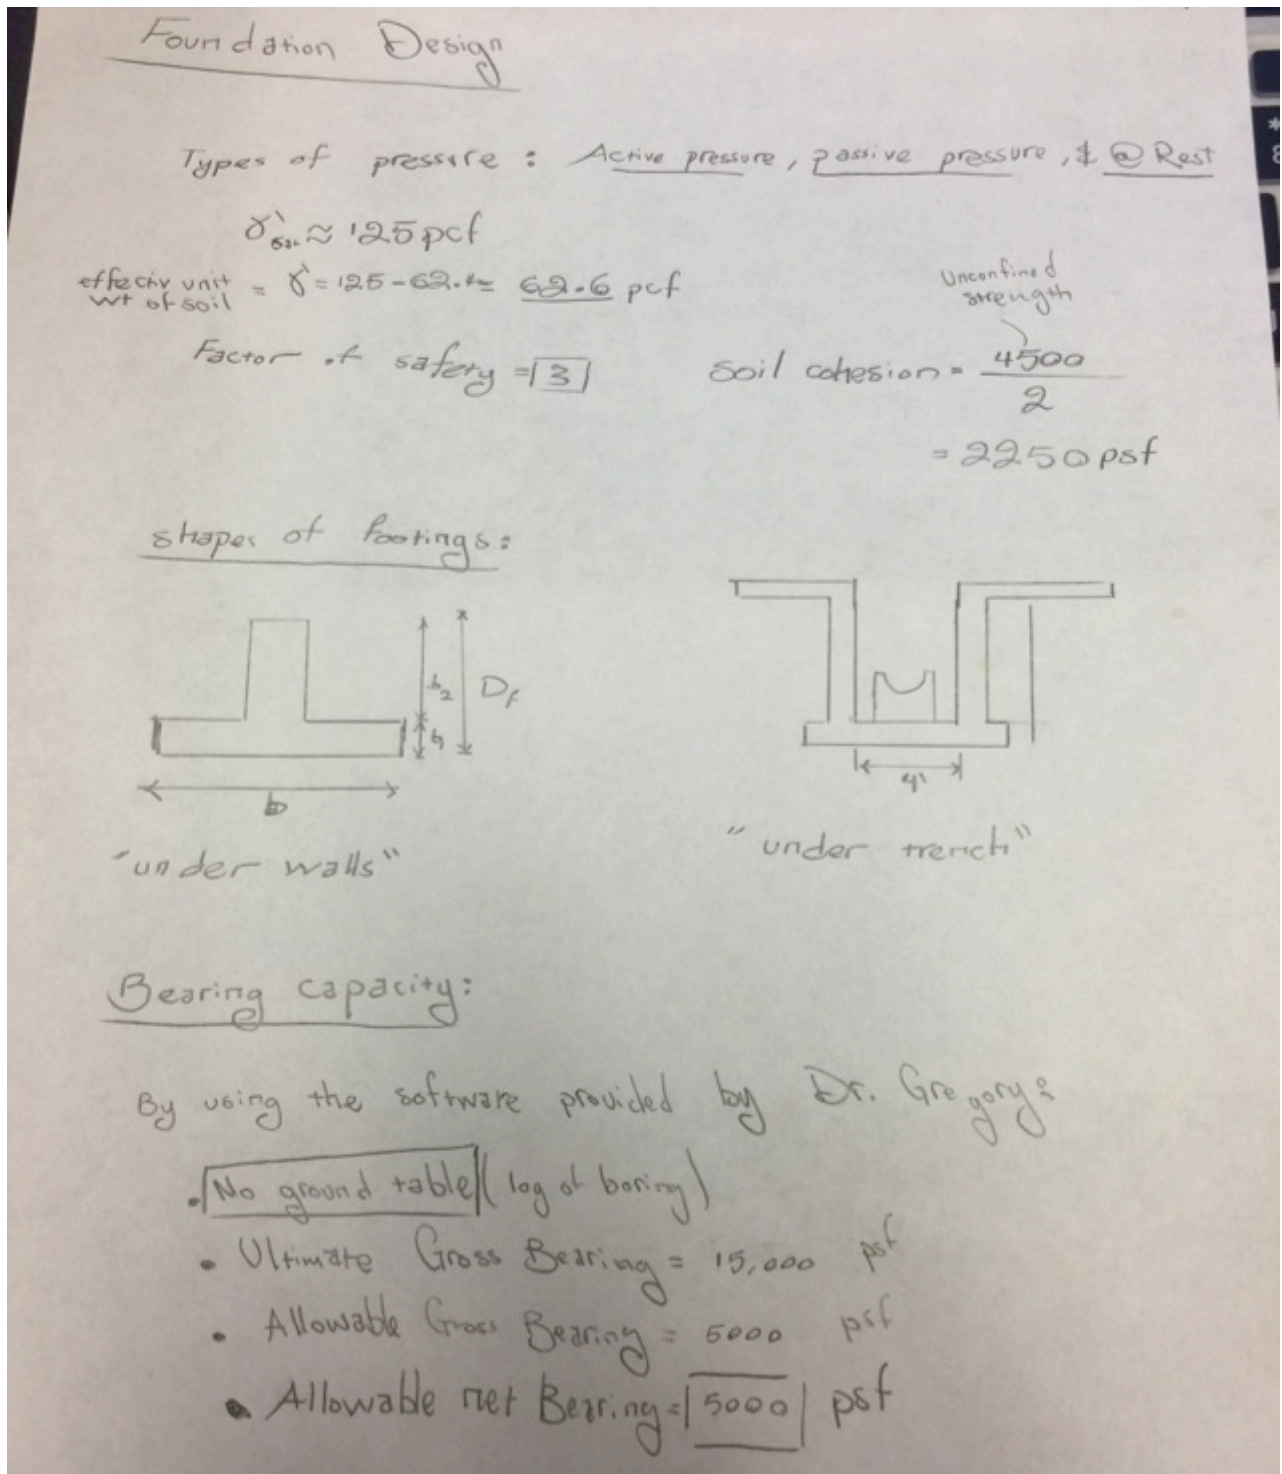 Foundation Design
Types of pressure : Active pressure, passive pressure, & @ Rest
≈ 125 pcf
effectiv unit wt of soil = γ' = 125 - 62.4 = 62.6 pcf
Unconfined strength
Factor of safety = 3
Soil cohesion = 4500 / 2
= 2250 psf
shapes of footings:
h2
Df
b
4'
"under walls"
"under trench"
Bearing capacity:
By using the software provided by Dr. Gregory:
• No ground table (log of boring)
• Ultimate Gross Bearing = 15,000 psf
• Allowable Gross Bearing = 5000 psf
• Allowable net Bearing = 5000 psf